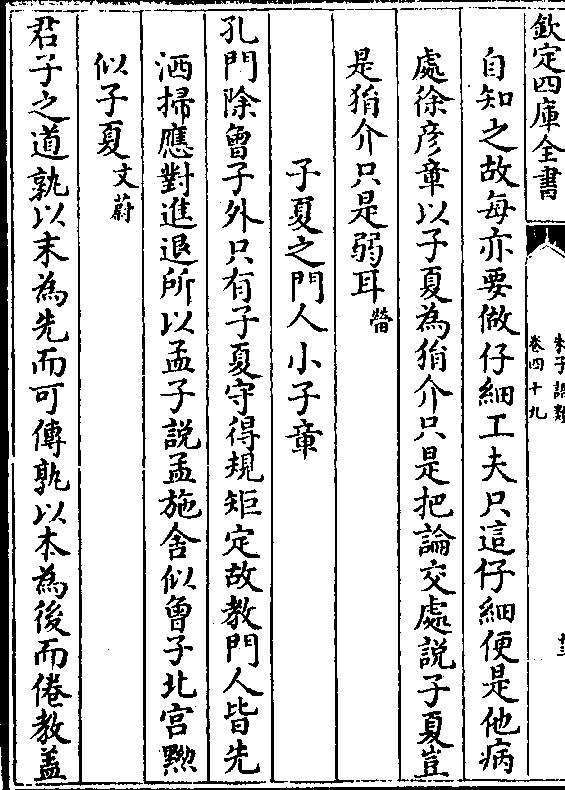 欽定四庫全書
朱子語類
卷四十九
自知之故每亦要做仔細工夫只這仔細便是他病
處徐彦章以子夏為狷介只是把論交處説子夏豈
是狷介只是弱耳㽦
子夏之門人小子章
孔門除曾子外只有子夏守得規矩定故教門人皆先
洒掃應對進退所以孟子說孟施舍似曾子北宮黝
似子夏文蔚
君子之道孰以末為先而可傳孰以本為後而倦教盖